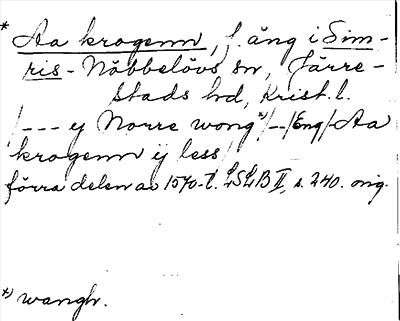 * Aa krogenn, f. äng i Sim-
ris-Nöbbelövs sn, Järre-
stads hd, Krist. l.
/--- ej Norre wong *)/--/Eng/ Aa
krogenn ij less/
förra delen av 1570-t. LSLB II, s. 240. orig.
*) wangh.